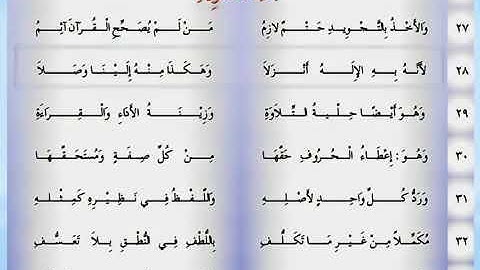 ٢٧ وَالأَخْذُ بِالتَّجْوِيدِ حَتْمٌ لَازِمُ مَنْ لَمْ يُصَحِّحِ الْقُرْآنَ آثِمُ
٢٨ لأَنَّهُ بِهِ الإِلَهُ أَنْزَلَا وَهَكَذَا مِنْهُ إِلَيْنَا وَصَلَا
٢٩ وَهُوَ أَيْضًا حِلْيَةُ التِّلَاوَةِ وَزِينَةُ الأَدَاءِ وَالْقِرَاءَةِ
٣٠ وَهُوَ: إِعْطَاءُ الْحُرُوفِ حَقَّهَا مِنْ كُلِّ صِفَةٍ وَمُسْتَحَقَّهَا
٣١ وَرَدُّ كُلِّ وَاحِدٍ لأَصْلِهِ وَاللَّفْظُ فِي نَظِيرِهِ كَمِثْلِهِ
٣٢ مُكَمَّلاً مِنْ غَيْرِ مَا تَكَلُّفِ بِاللُّطْفِ فِي النُّطْقِ بِلَا تَعَسُّفِ